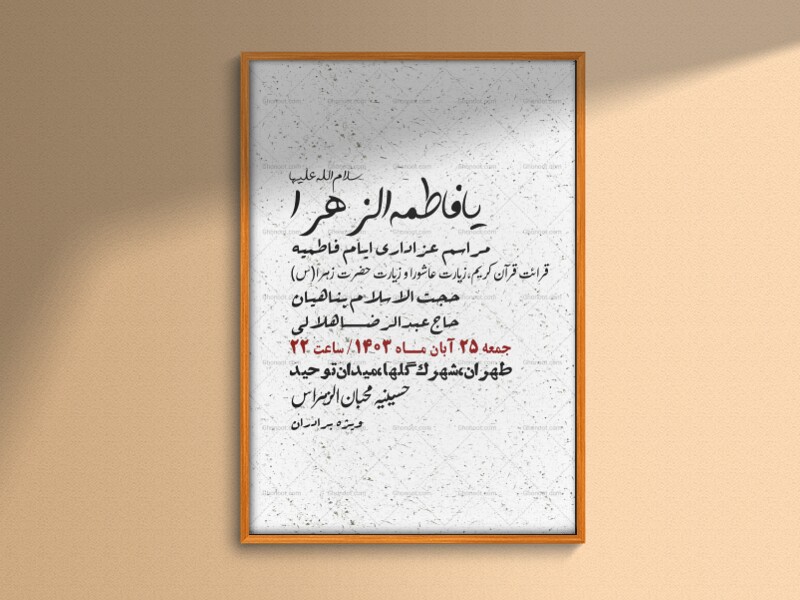 سلام الله علیها
یا فاطمه الزهرا
مراسم عزاداری ایام فاطمیه
قرائت قرآن کریم، زیارت عاشورا و زیارت حضرت زهرا (س)
حجت الاسلام پناهیان
حاج عبدالرضا هلالی
جمعه ۲۵ آبان ماه ۱۴۰۳ / ساعت ۲۲
طهران، شهرک گلها، میدان توحید
حسینیه محبان الزهرا س
ویژه برادران
Ghonoot.com